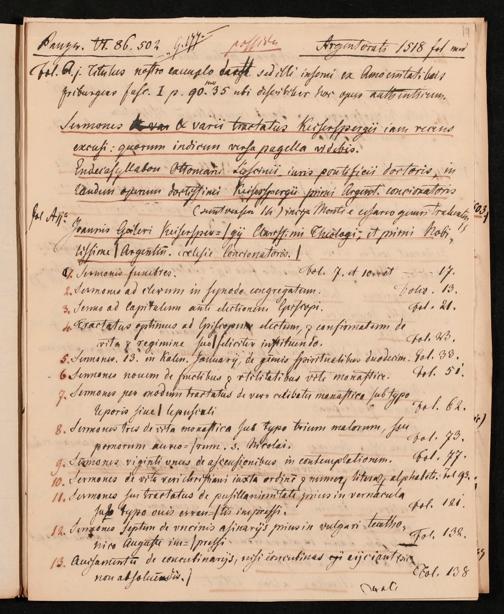 19
Panzer VI. 86. 502 possideo Argentorati 1518 fol. min
fol. A. j. Titulus nostro exemplo deest sed illi insoni ex Amoenitatibus
friburgens fasc. I p. 90. 35 ubi describitur hoc opus
Sermones & varii tractatus Keiserspergii iam recens
excusi: quorum indicem versa pagella videbis.
Endecasyllabon Ottomarii Luscinii, iuris pontificii doctoris, in
laudem operum doctissimi Keiserspergii primi Argent. concionatoris
Joannis Geileri Keisersper=/gii Theologi, et primi
/ Argentin. ecclesie Concionatoris. /
1. Sermones funebres. fol. 7. 17.
2. Sermones ad clerum in synodo congregatum. 13.
3. Sermo ad capitulum anti electionem Episcopi. fol. 21.
4. Tractatus optimus ad Episcopum electum, & confirmatum de
vita & regimine feliciter instituendo. fol. 23.
5. Sermones. 13. in Kalen. Januarij, de spiritualibus duodecim. fol. 33.
6. Sermones novem de fructibus & utilitatibus vite monastice. fol. 51.
7. Sermones per modum tractatus de vero celibatu monastico sub typo
leporis siue / lepusculi fol. 62.
8. Sermones tres de vita monastica sub typo trium malorum, seu
pomorum aureo=/rum. s. Nicolai. fol. 73.
9. Sermones viginti unus de ascensionibus in contemplationem. fol. 77.
10. Sermones de vita veri christiani iuxta ordinem & numerum literarum alphabeti. fol. 93.
11. Sermones seu tractatus de pusillanimitate prius in vernacula
sub typo ouis erran=/tis impressi. fol. 121.
12. Sermones septem de vocinis asinarijs, prius in vulgari teutho,
nico Auguste im=/pressi. fol. 132.
13. Auisamentum de concubinarijs, nisi concubinas eijciant
non absoluendis. / fol. 138